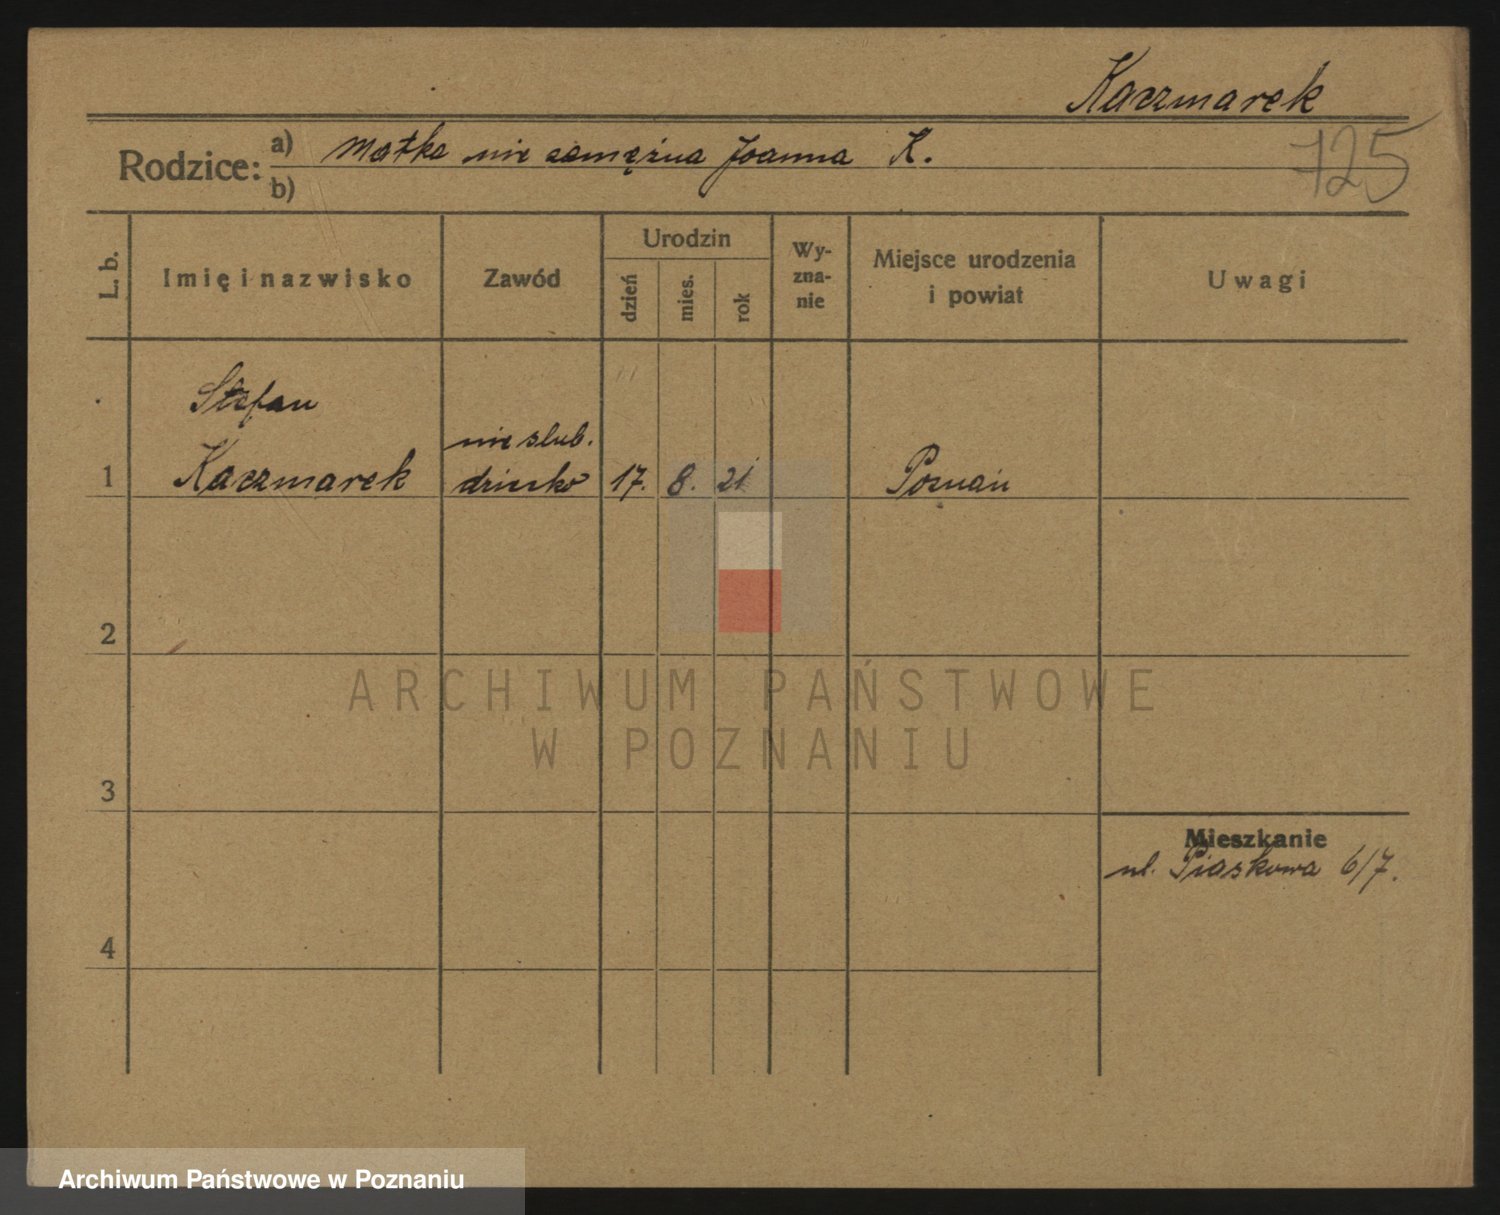 Kaczmarek
125
Rodzice: a) Matka nie zamężna Joanna K.
b)
L. b.
Imię i nazwisko
Zawód
Urodzin
dzień
mies.
rok
Wy-
zna-
nie
Miejsce urodzenia
i powiat
Uwagi
Stefan
nie slub.
1 Kaczmarek dziecko 17. 8. 21 Poznań
2
ARCHIWUM PAŃSTWOWE
W POZNANIU
3
Mieszkanie
ul. Piaskowa 6/7.
4
Archiwum Państwowe w Poznaniu